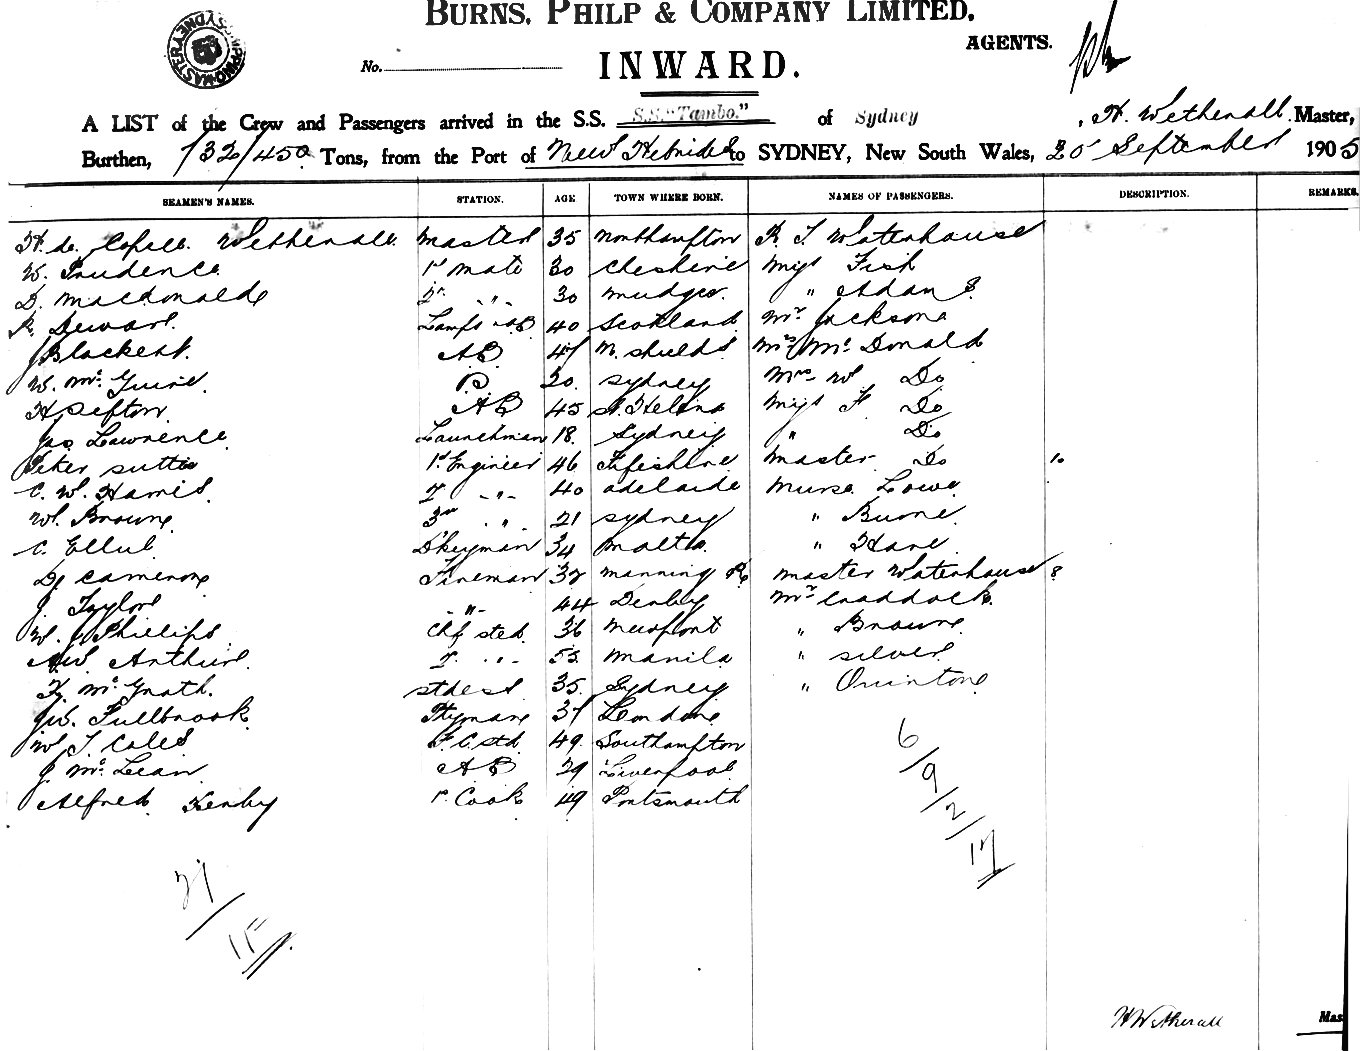 BURNS, PHILP & COMPANY LIMITED,
AGENTS.
No.
INWARD.
A LIST of the Crew and Passengers arrived in the S.S. S.S. "Tambo." of Sydney, H. Wetherall Master,
Burthen, 732/450 Tons, from the Port of New Hebrides to SYDNEY, New South Wales, 20 September 1905
SEAMEN'S NAMES. STATION. AGE TOWN WHERE BORN. NAMES OF PASSENGERS. DESCRIPTION. REMARKS.
H. de Wetherall Master 35 Northampton R. T. Waterhouse
W. Prudence 1st Mate 30 Cheshire Miss Fish
D. Macdonald 2nd " 30 Mudgee " Adams
Dewar Lamps AB 40 Scotland Mr Jackson
J Blackett AB 47 N. Shields Mrs McDonald
W. McGuire 20 Sydney Mrs W. Do
H Sefton AB 45 St Helena Miss F Do
Jas Lawrence Launchman 18 Sydney " Do
Peter Suttie 1st Engineer 46 Fifeshire Master Do 10
C. W. Harris 2 " 40 Adelaide Nurse Lowe
W. Browne 3rd " 21 Sydney " Burne
C. Ellul D'keyman 34 Malta " Hare
D Cameron Fireman 32 Manning R Master Waterhouse 8
J. Taylor " 44 Derby Mr Craddock
W. J Phillips Chf sted 36 Newport " Browne
AW Arthur 2 " 53 Manila " Silver
McGrath stdess 35 Sydney " Quinton
JW. Fullbrook Ptyman 37 London
W. T Coles F. C. std 49 Southampton
J McLean AB 29 Liverpool
Alfred Kenby 1st Cook 49 Portsmouth
6/9/2/17
21/15
HWetherall
Mas